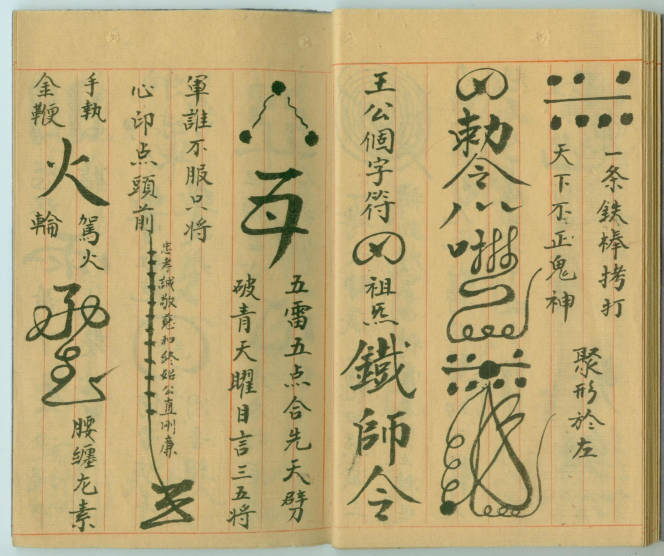 一条鉄棒拷打
天下不正鬼神
聚形於左
勅令
王公個字符
祖炁
鐵師令
五雷五点合先天劈
破青天曜目言三五将
軍誰不服只将
心印点頭前
忠孝誠敬慈和終始公直剛廉
手執
火
駕火
金鞭
輪
腰纏
素